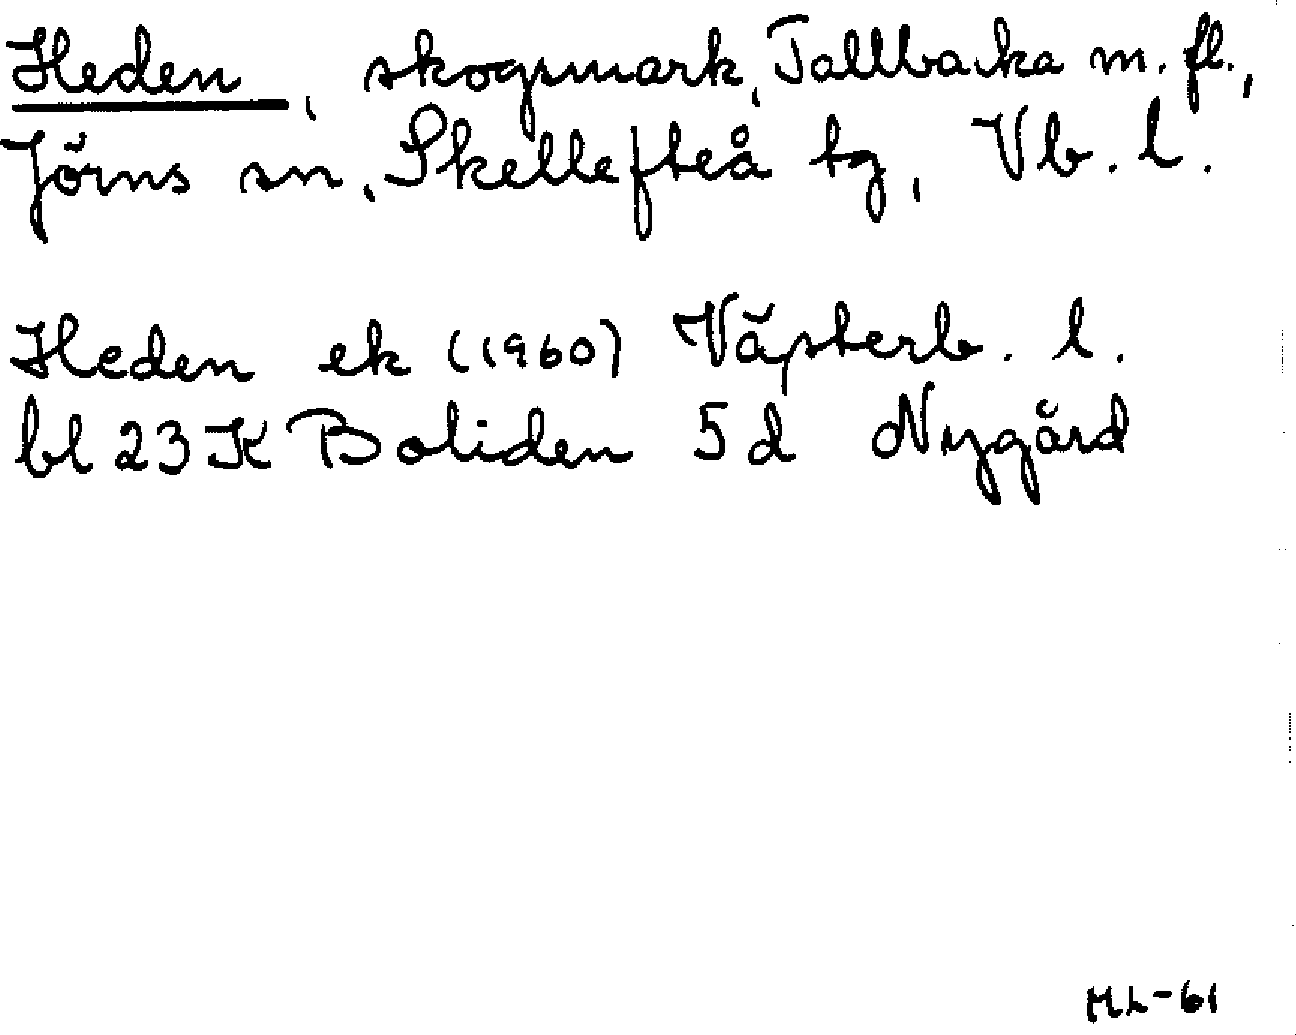 Heden, skogsmark, Tallbacka m. fl.,
Jörns sn, Skellefteå tg, Vb. l.
Heden ek (1960) Västerb. l.
bl 23 K Boliden 5d Nygård
ML-61